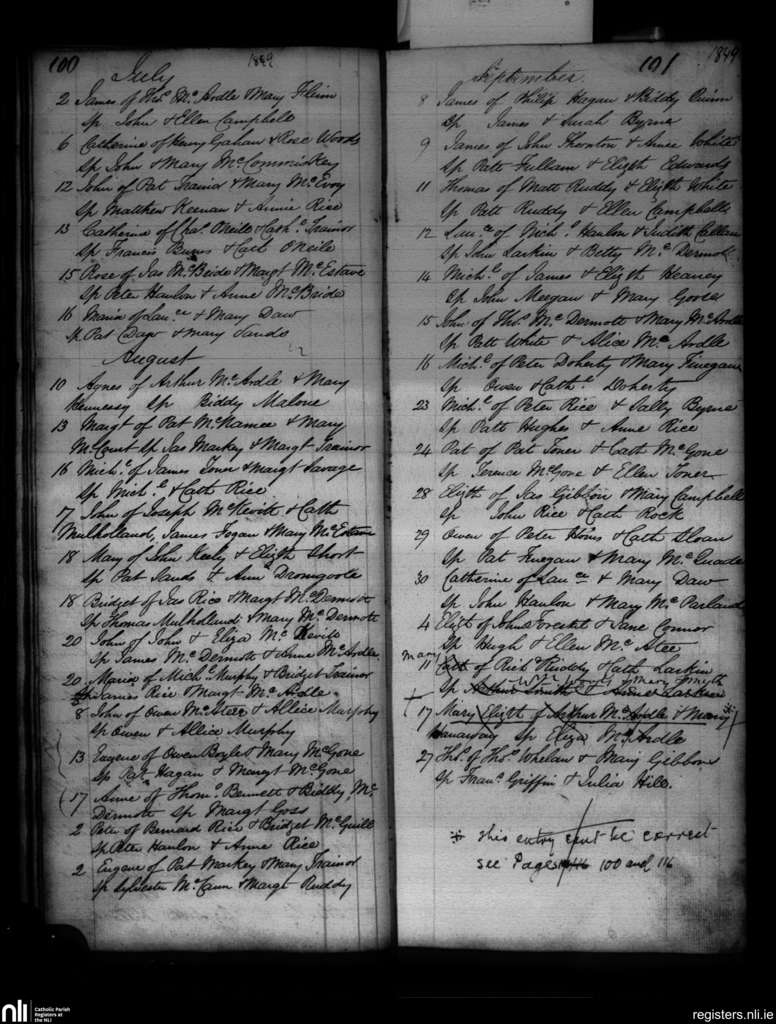 100
July 1849
2 James of Thos. McArdle & Mary
Sp John & Ellen Campbell
6 Catherine of Henry Gahan & Rose Woods
Sp John & Mary
12 John of Pat Trainor & Mary McEvoy
Sp Matthew Keenan & Annie Rice
13 Catherine of Chas. ONeile & Cathe. Trainor
Sp Francis Burns & Cath ONeile
15 Rose of Jas McBride & Margt McEstave
Sp Peter Hanlon & Anne McBride
16 Maria of Laurce & Mary Daw
Sp Pat Daw & Mary Sands
August
10 Agnes of Arthur McArdle & Mary
Hennessy Sp Biddy Malone
13 Margt of Pat McNamee & Mary
McCourt Sp Jas Markey & Margt Trainor
16 Michl. of James Toner & Margt Savage
Sp Michl. & Cath Rice
17 John of Joseph McKevitt & Cath
Mulholland, James Fegan & Mary McEstave
18 Mary of John Keely & Elizth Short
Sp Pat Sands & Ann Dromgoole
18 Bridget of Jas Rice & Margt McDermott
Sp Thomas Mulholland & Mary McDermott
20 John of John & Eliza McKevitt
Sp James McDermott & Anne McArdle
20 Maria of Michl. Murphy & Bridget Trainor
James Rice & Margt McArdle
8 John of Owen McAtee & Allice Murphy
Sp Owen & Allice Murphy
13 Eugene of Owen Boyle & Mary McGone
Sp Pat Hagan & Margt McGone
17 Anne of Thoms. Bennett & Biddy Mc
Dermott Sp Margt Goss
2 Peter of Bernard Rice & Bridget McGuill
Sp Peter Hanlon & Anne Rice
2 Eugene of Pat Markey & Mary Trainor
Sp Sylvester McCann & Margt Ruddy
101 1849
September
8 James of Philip Hagan & Biddy Quinn
Sp James & Sarah Byrne
9 James of John Thornton & Anne White
Sp Patt Fullam & Elizth Edwards
11 Thomas of Matt Ruddy & Elizth White
Sp Patt Ruddy & Ellen Campbell
12 Laurce of Michl. Hanlon & Judith Callan
Sp John Larkin & Betty McDermott
14 Michl. of James & Elizth Heaney
Sp John Meegan & Mary Gosse
15 John of Thos. McDermott & Mary McArdle
Sp Patt White & Alice McArdle
16 Michl. of Peter Doherty & Mary Finegan
Sp Owen & Cathe. Doherty
23 Michl. of Peter Rice & Sally Byrne
Sp Patt Hughes & Anne Rice
24 Pat of Pat Toner & Cath McGone
Sp Terence McGone & Ellen Toner
28 Elizth of Jas Gibbon & Mary Campbell
Sp John Rice & Cath Rock
29 Owen of Peter & Cath Sloan
Sp Pat Finegan & Mary McQuade
30 Catherine of Laurce & Mary Daw
Sp John Hanlon & Mary McParland
4 Elizth of John & Jane Connor
Sp Hugh & Ellen McAtee
Mary
11 Cath of Rich Ruddy & Cath Larkin
Wm Woods & Mary Smyth
Sp Arthur Smith & Anne Larkin
17 Mary Elizth of Arthur McArdle & Mary
Hanaway Sp Eliza McArdle
27 Thos. of Thos. Whelan & Mary Gibbons
Sp Franc. Griffin & Julia Hill.
* this entry can't be correct
see Pages 100 and 116
nli Catholic Parish
Registers at
the NLI
registers.nli.ie